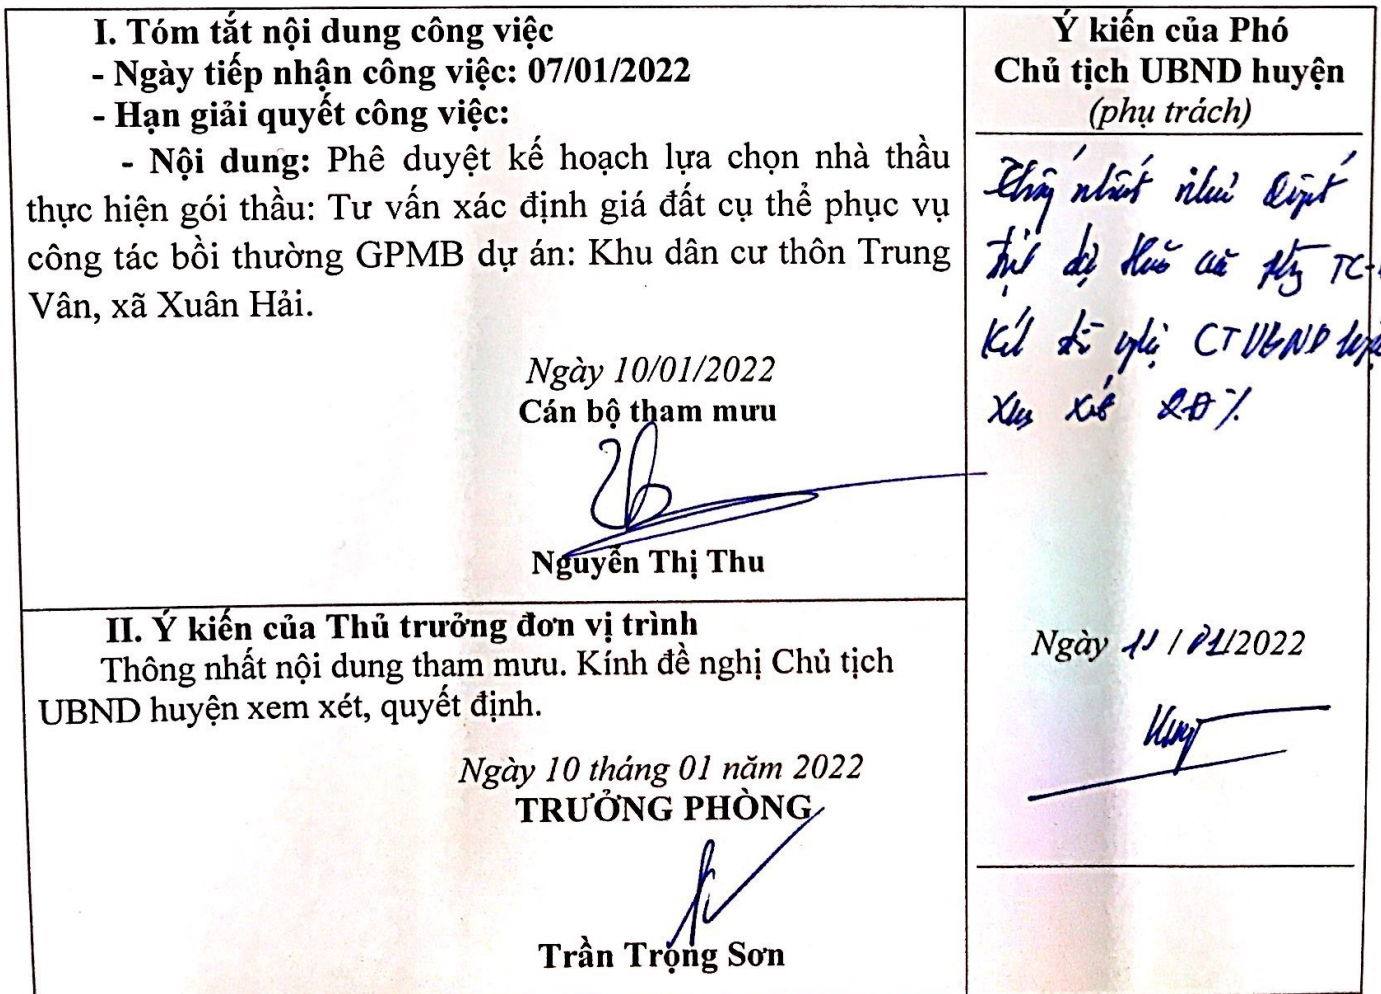 I. Tóm tắt nội dung công việc
- Ngày tiếp nhận công việc: 07/01/2022
- Hạn giải quyết công việc:
- Nội dung: Phê duyệt kế hoạch lựa chọn nhà thầu
thực hiện gói thầu: Tư vấn xác định giá đất cụ thể phục vụ
công tác bồi thường GPMB dự án: Khu dân cư thôn Trung
Vân, xã Xuân Hải.
Ngày 10/01/2022
Cán bộ tham mưu
Nguyễn Thị Thu
II. Ý kiến của Thủ trưởng đơn vị trình
Thông nhất nội dung tham mưu. Kính đề nghị Chủ tịch
UBND huyện xem xét, quyết định.
Ngày 10 tháng 01 năm 2022
TRƯỞNG PHÒNG
Trần Trọng Sơn
Ý kiến của Phó
Chủ tịch UBND huyện
(phụ trách)
Thống nhất như
TC-
đề nghị CT UBND
xem xét
Ngày 11 / 01/2022